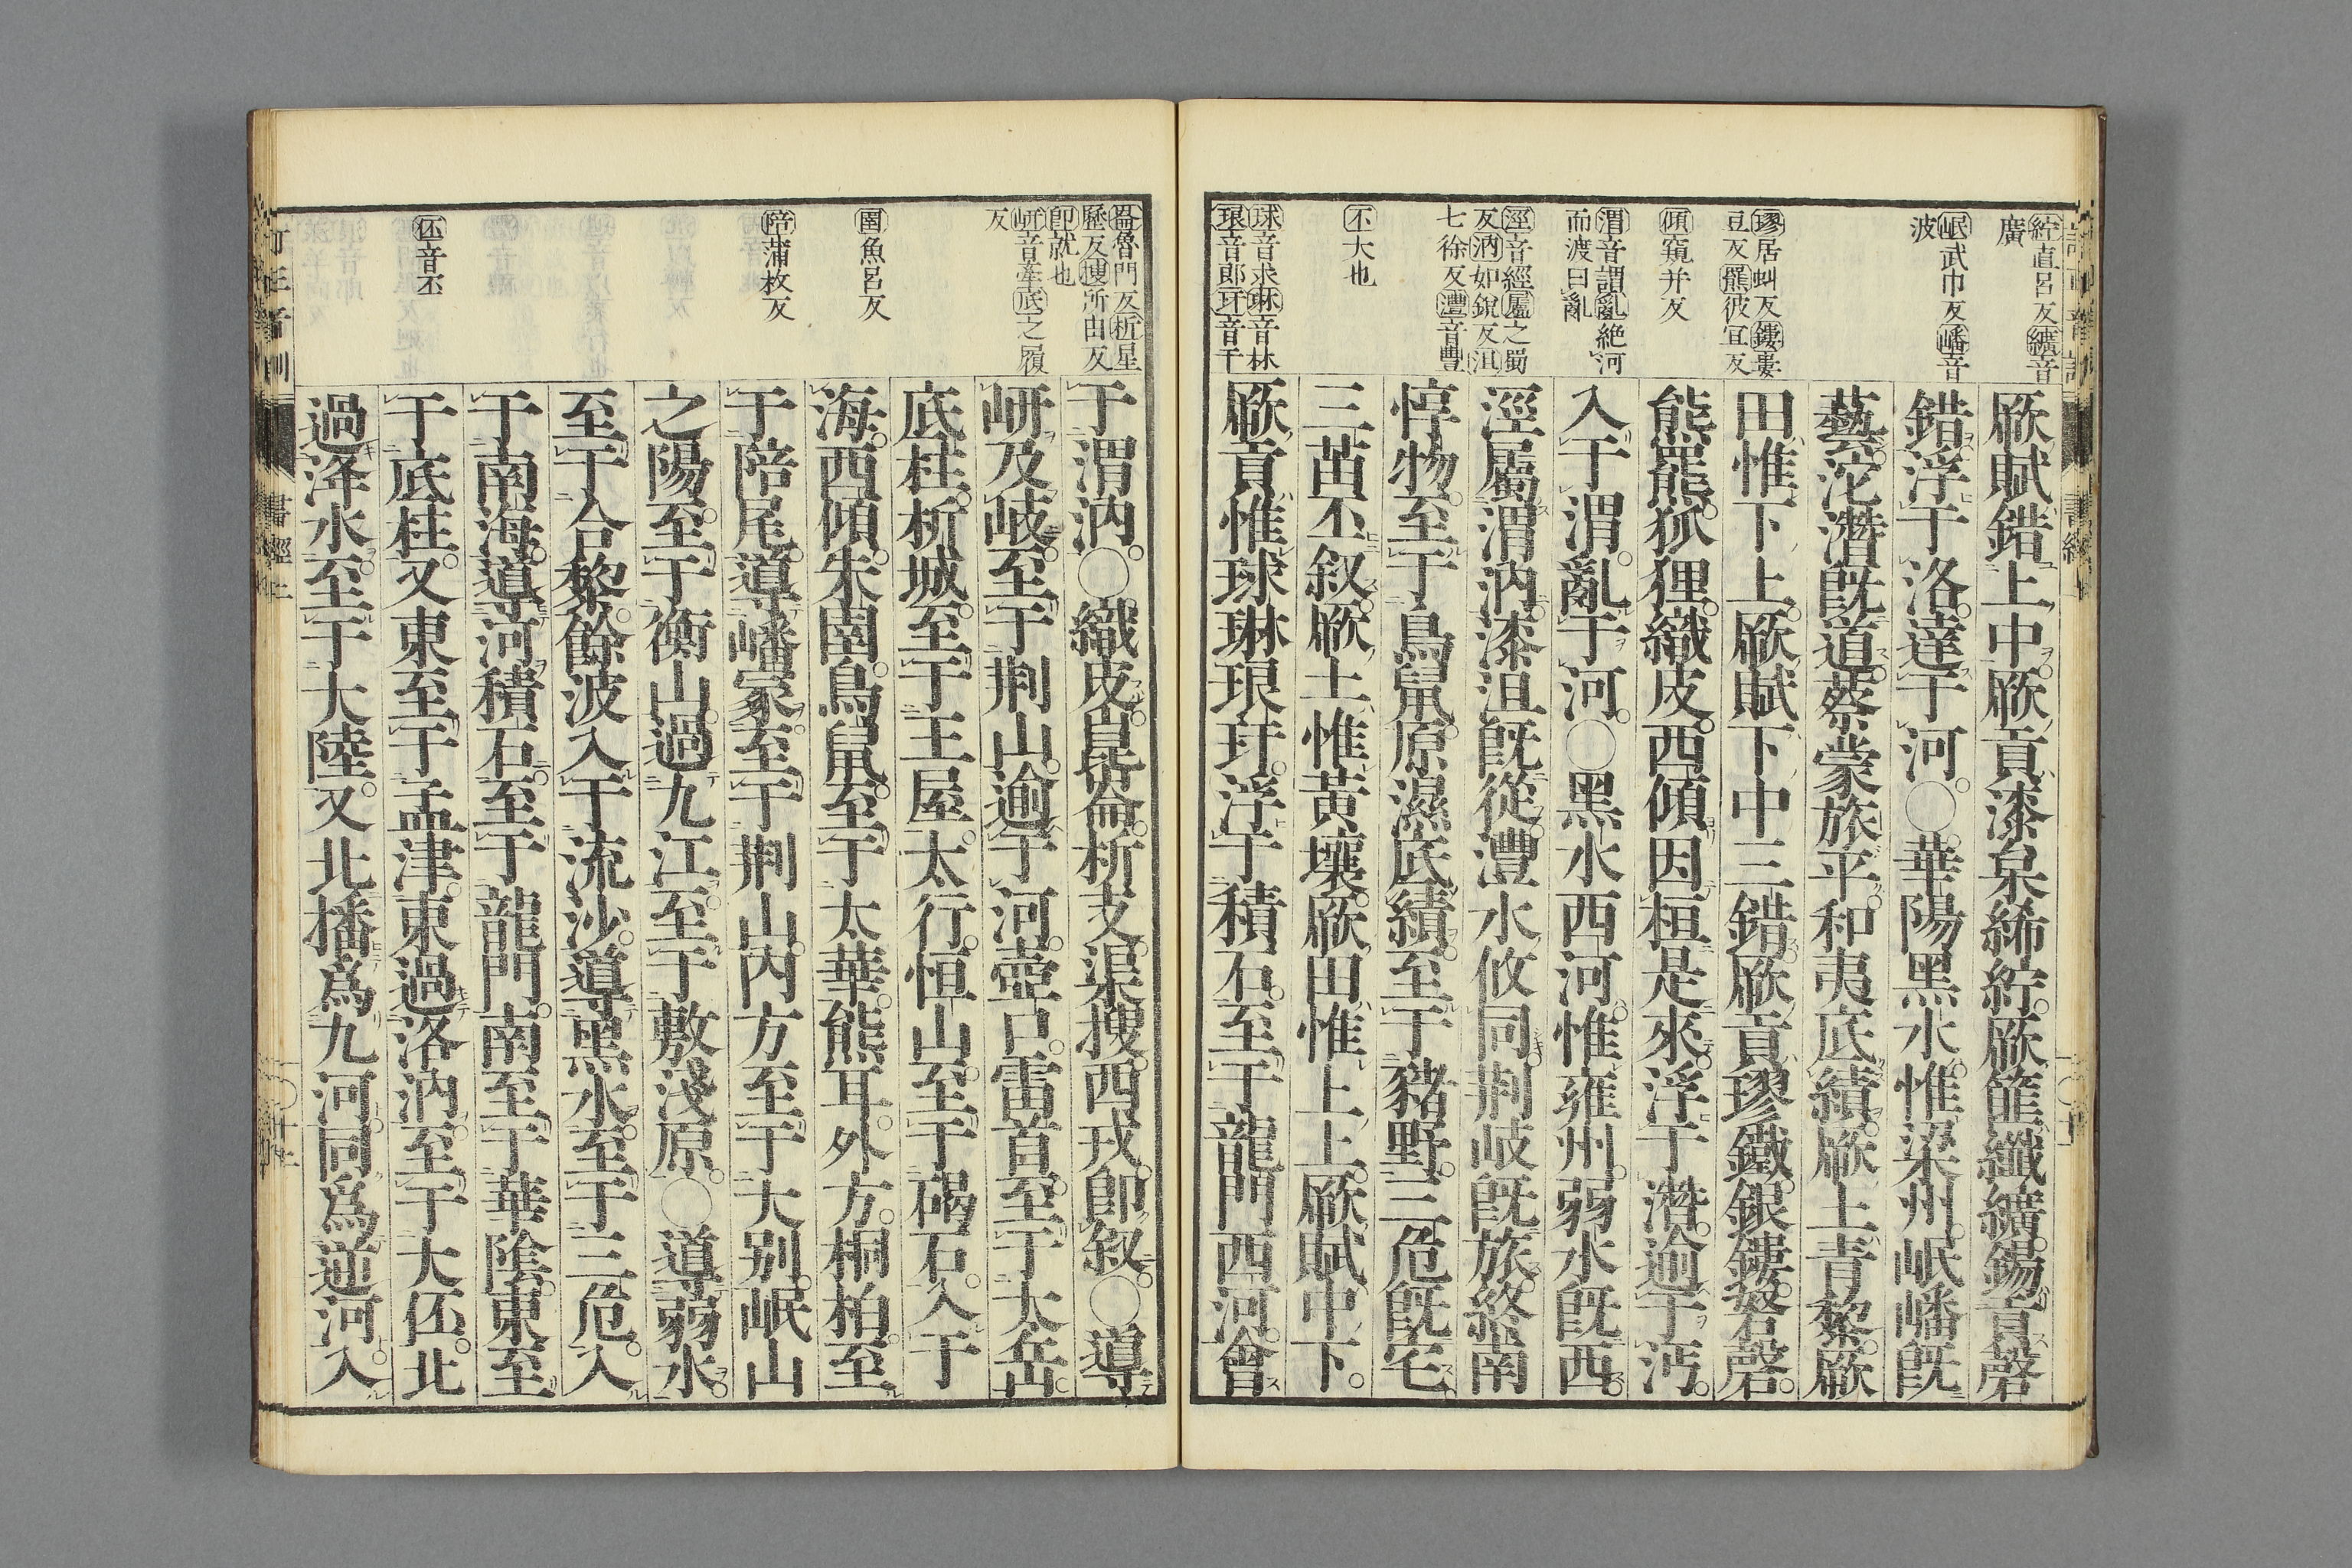 紵直呂反纊音
廣
岷武巾反嶓音
波
璆居虯反鏤婁
豆反羆彼宜反
傾窺并反
渭音謂亂絶河
而渡曰亂
涇音經屬之蜀
反汭如銳反沮
七徐反灃音豐
丕大也
球音求琳音林
琅音郎玕音干
厥賦錯上中厥貢漆枲絺紵厥篚纖纊錫貢磬
錯浮于洛達于河○華陽黑水惟梁州岷嶓既
藝沱潛既道蔡蒙旅平和夷厎績厥土青黎厥
田惟下上厥賦下中三錯厥貢璆鐵銀鏤砮磬
熊羆狐狸織皮西傾因桓是來浮于潛逾于沔
入于渭亂于河○黑水西河惟雍州弱水既西
涇屬渭汭漆沮既從灃水攸同荆岐既旅終南
惇物至于鳥鼠原濕厎績至于豬野三危既宅
三苗丕敘厥土惟黃壤厥田惟上上厥賦中下
厥貢惟球琳琅玕浮于積石至于龍門西河會
崙魯門反析星
歷反搜所由反
即就也
岍音牽厎之履
反
圉魚呂反
陪蒲枚反
伾音丕
于渭汭○織皮崑崙析支渠搜西戎即敘○導
岍及岐至于荆山逾于河壺口雷首至于太岳
底柱析城至于王屋太行恒山至于碣石入于
海西傾朱圉鳥鼠至于太華熊耳外方桐柏至
于陪尾導嶓冢至于荆山內方至于大别岷山
之陽至于衡山過九江至于敷淺原○導弱水
至于合黎餘波入于流沙導黑水至于三危入
于南海導河積石至于龍門南至于華陰東至
于底柱又東至于孟津東過洛汭至于大伾北
過洚水至于大陸又北播爲九河同爲逆河入